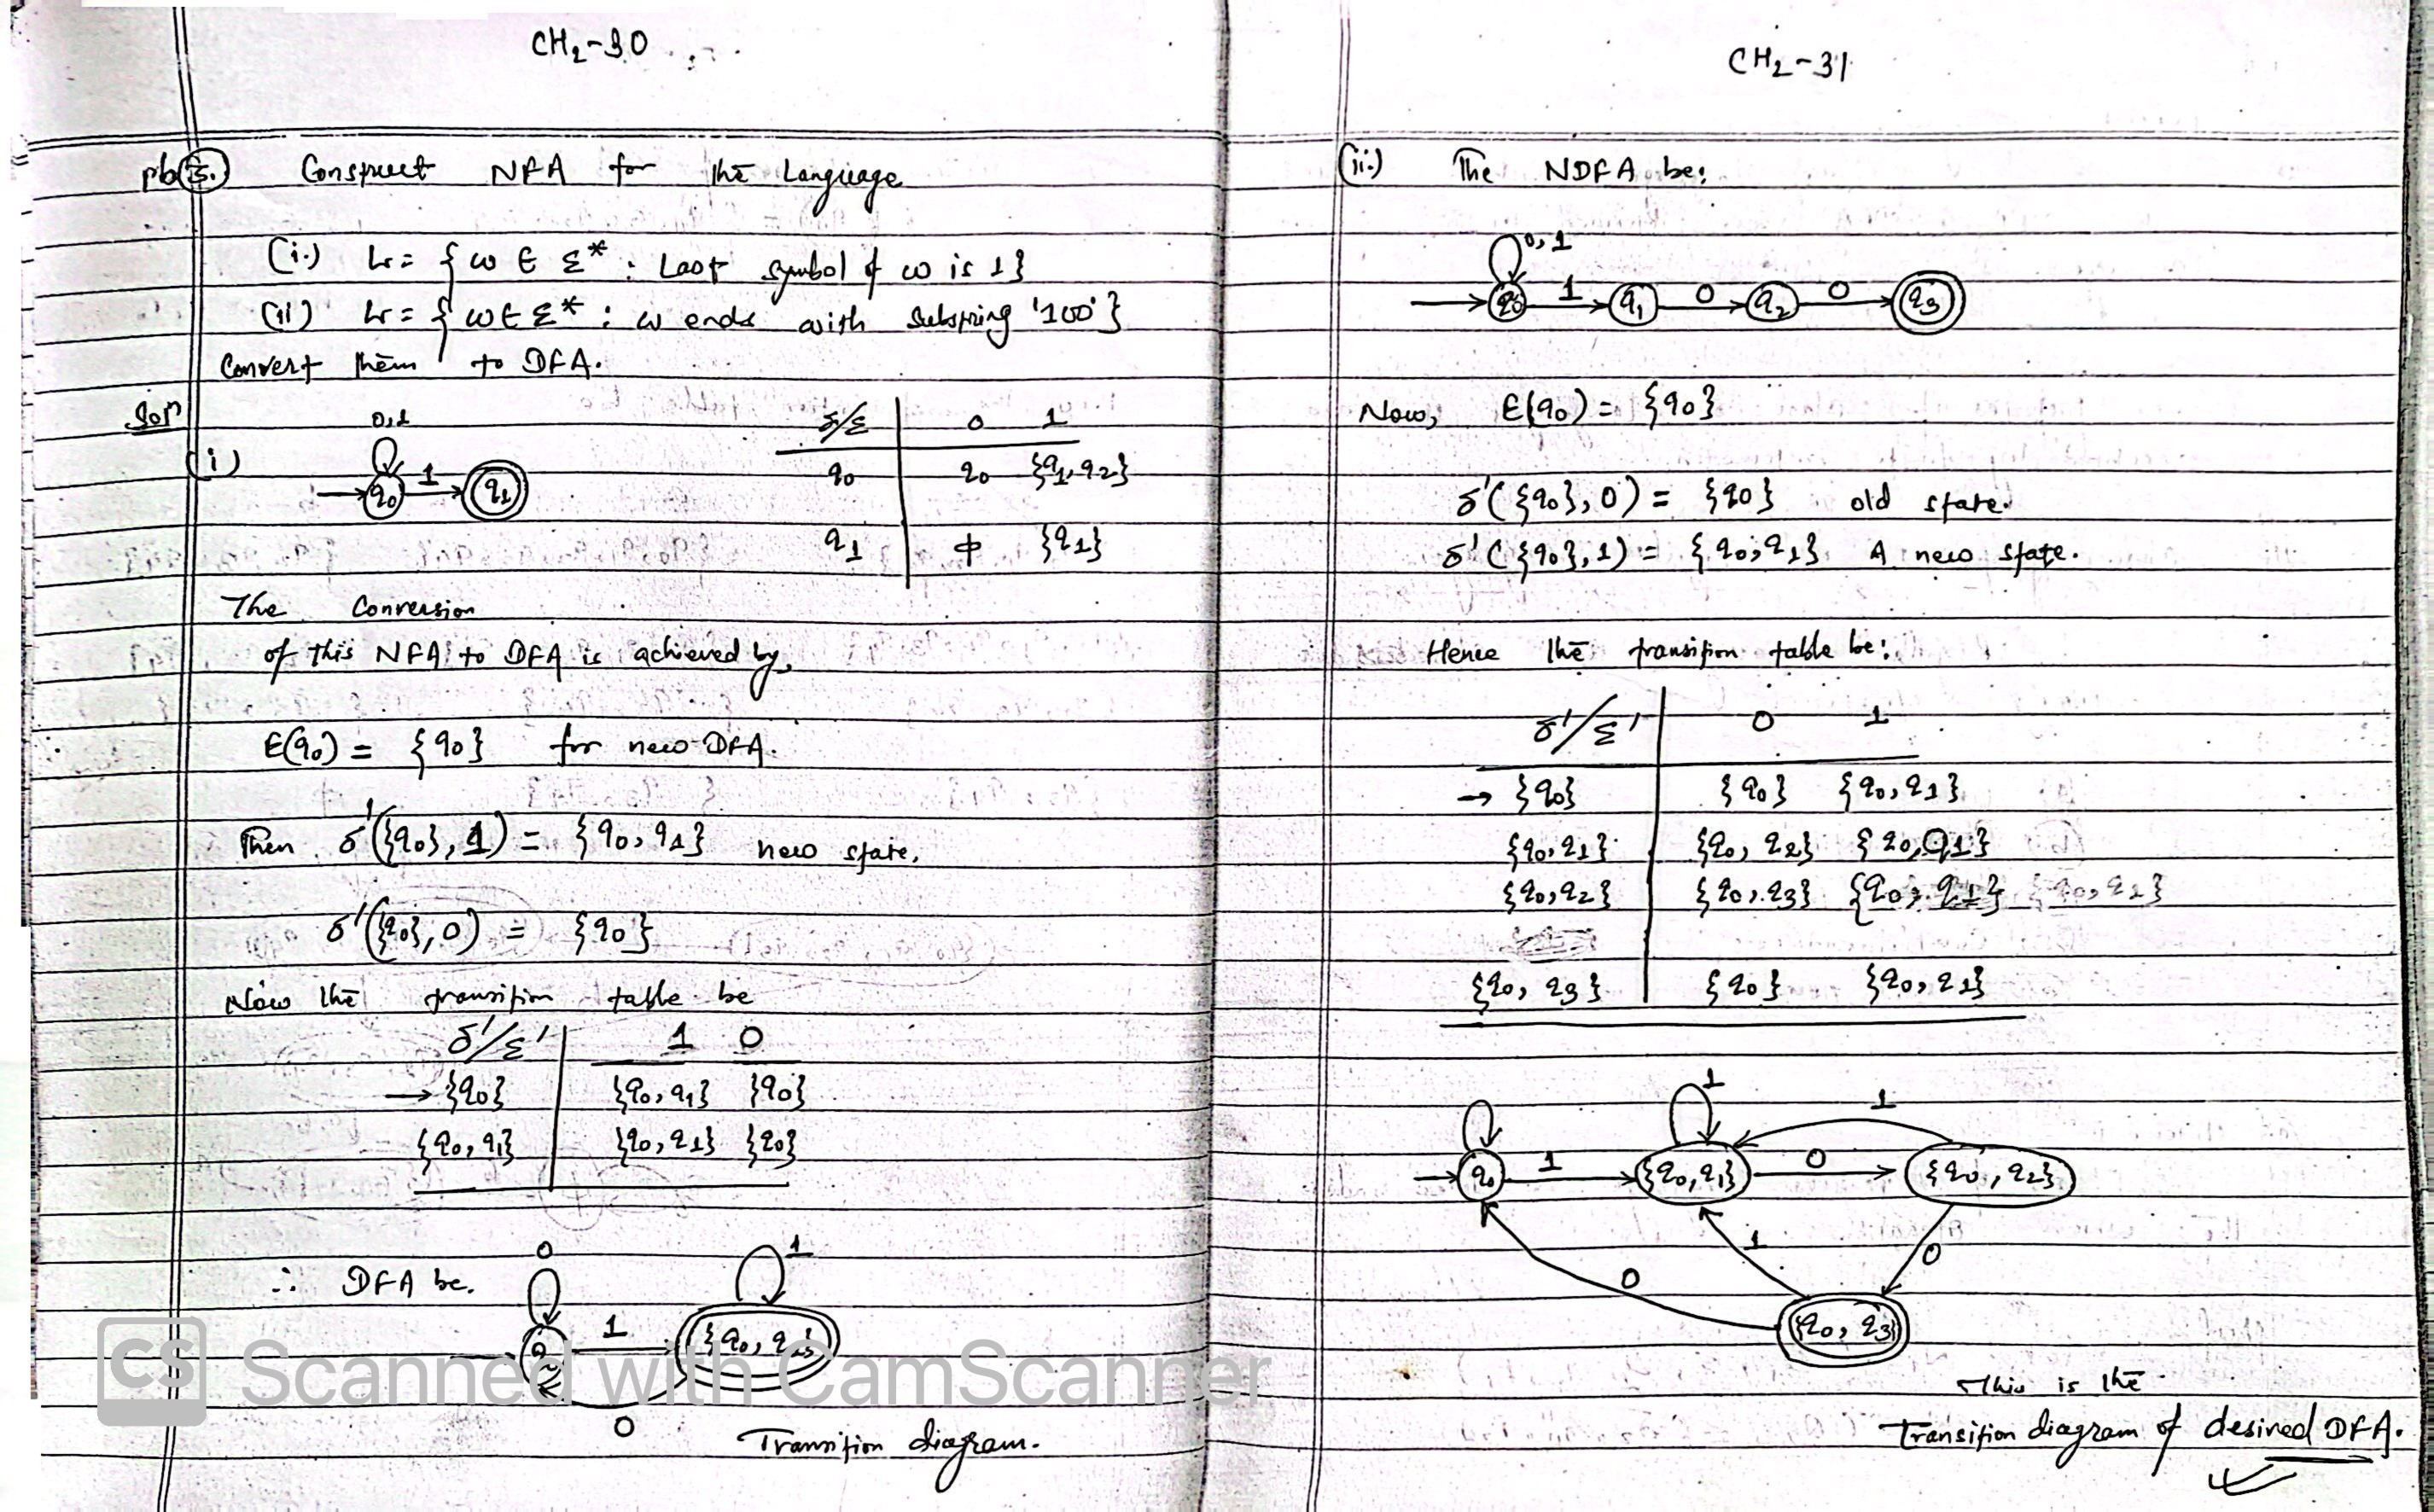 CH₂-30
pb 5. Construct NFA for the Language
(i.) L = { w ∈ Σ* : Last symbol of w is 1}
(ii) L = { w ∈ Σ* : w ends with substring '100'}
Convert them to DFA.
Solⁿ
(i)
0,1
q₀ 1 q₁
δ/Σ 0 1
q₀ q₀ {q₁,q₂}
q₁ ϕ {q₁}
The Conversion
of this NFA to DFA is achieved by,
E(q₀) = {q₀} for new DFA.
Then δ'({q₀}, 1) = {q₀, q₁} new state,
δ'({q₀}, 0) = {q₀}
Now the transition table be
δ'/Σ' 1 0
→ {q₀} {q₀, q₁} {q₀}
{q₀, q₁} {q₀, q₁} {q₀}
∴ DFA be.
0 1
1 {q₀, q₁}
0
Transition diagram.
CS Scanned with CamScanner
CH₂-31
(ii.) The NDFA be:
0, 1
q₀ 1 q₁ 0 q₂ 0 q₃
Now, E(q₀) = {q₀}
δ'({q₀}, 0) = {q₀} old state.
δ'({q₀}, 1) = {q₀, q₁} A new state.
Hence the transition table be:
δ'/Σ' 0 1
→ {q₀} {q₀} {q₀, q₁}
{q₀, q₁} {q₀, q₂} {q₀, q₁}
{q₀, q₂} {q₀, q₃} {q₀, q₁} {q₀, q₁}
{q₀, q₃} {q₀} {q₀, q₁}
1 1
q₀ 1 {q₀, q₁} 0 {q₀, q₂}
1 0
0
{q₀, q₃}
This is the
Transition diagram of desired DFA.